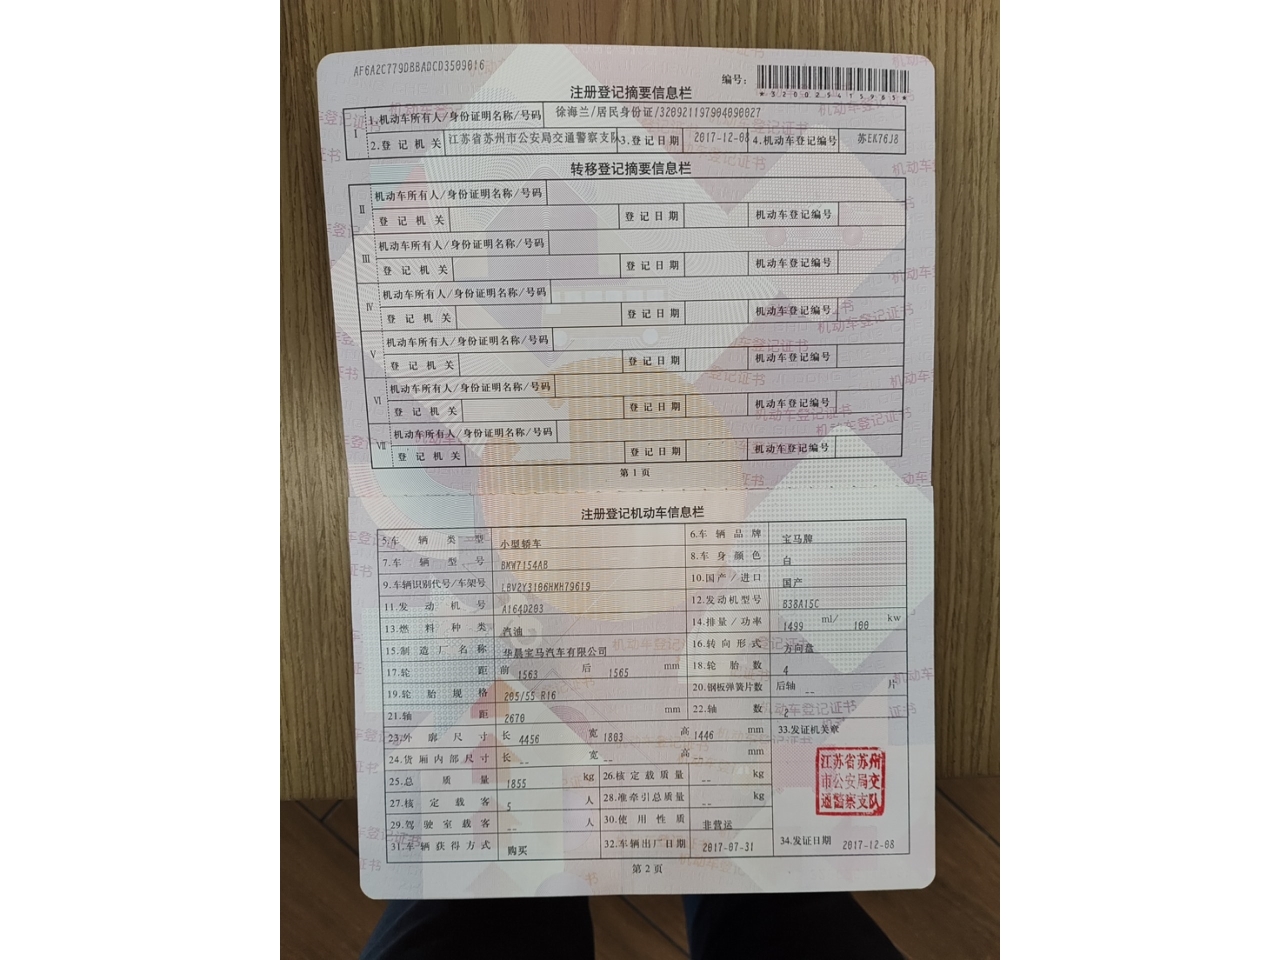 AF6A2C779DBBADCD3509016
编号：
*320025415985*
注册登记摘要信息栏
I 1.机动车所有人/身份证明名称/号码 徐海兰/居民身份证/320921197904090027
2.登记机关 江苏省苏州市公安局交通警察支队 3.登记日期 2017-12-08 4.机动车登记编号 苏EK76J8
转移登记摘要信息栏
II 机动车所有人/身份证明名称/号码
登记机关 登记日期 机动车登记编号
III 机动车所有人/身份证明名称/号码
登记机关 登记日期 机动车登记编号
IV 机动车所有人/身份证明名称/号码
登记机关 登记日期 机动车登记编号
V 机动车所有人/身份证明名称/号码
登记机关 登记日期 机动车登记编号
VI 机动车所有人/身份证明名称/号码
登记机关 登记日期 机动车登记编号
VII 机动车所有人/身份证明名称/号码
登记机关 登记日期 机动车登记编号
第1页
注册登记机动车信息栏
5.车辆类型 小型轿车 6.车辆品牌 宝马牌
7.车辆型号 BMW7154AB 8.车身颜色 白
9.车辆识别代号/车架号 LBV2Y3106HMH79619 10.国产/进口 国产
11.发动机号 A164D203 12.发动机型号 B38A15C
13.燃料种类 汽油 14.排量/功率 1499 ml/ 100 kw
15.制造厂名称 华晨宝马汽车有限公司 16.转向形式 方向盘
17.轮距 前 1563 后 1565 mm 18.轮胎数 4
19.轮胎规格 205/55 R16 20.钢板弹簧片数 后轴 -- 片
21.轴距 2670 mm 22.轴数 2
23.外廓尺寸 长 4456 宽 1803 高 1446 mm 33.发证机关章
24.货厢内部尺寸 长 -- 宽 -- 高 -- mm
25.总质量 1855 kg 26.核定载质量 -- kg
27.核定载客 5 人 28.准牵引总质量 -- kg
29.驾驶室载客 -- 人 30.使用性质 非营运
31.车辆获得方式 购买 32.车辆出厂日期 2017-07-31 34.发证日期 2017-12-08
江苏省苏州
市公安局交
通警察支队
第2页